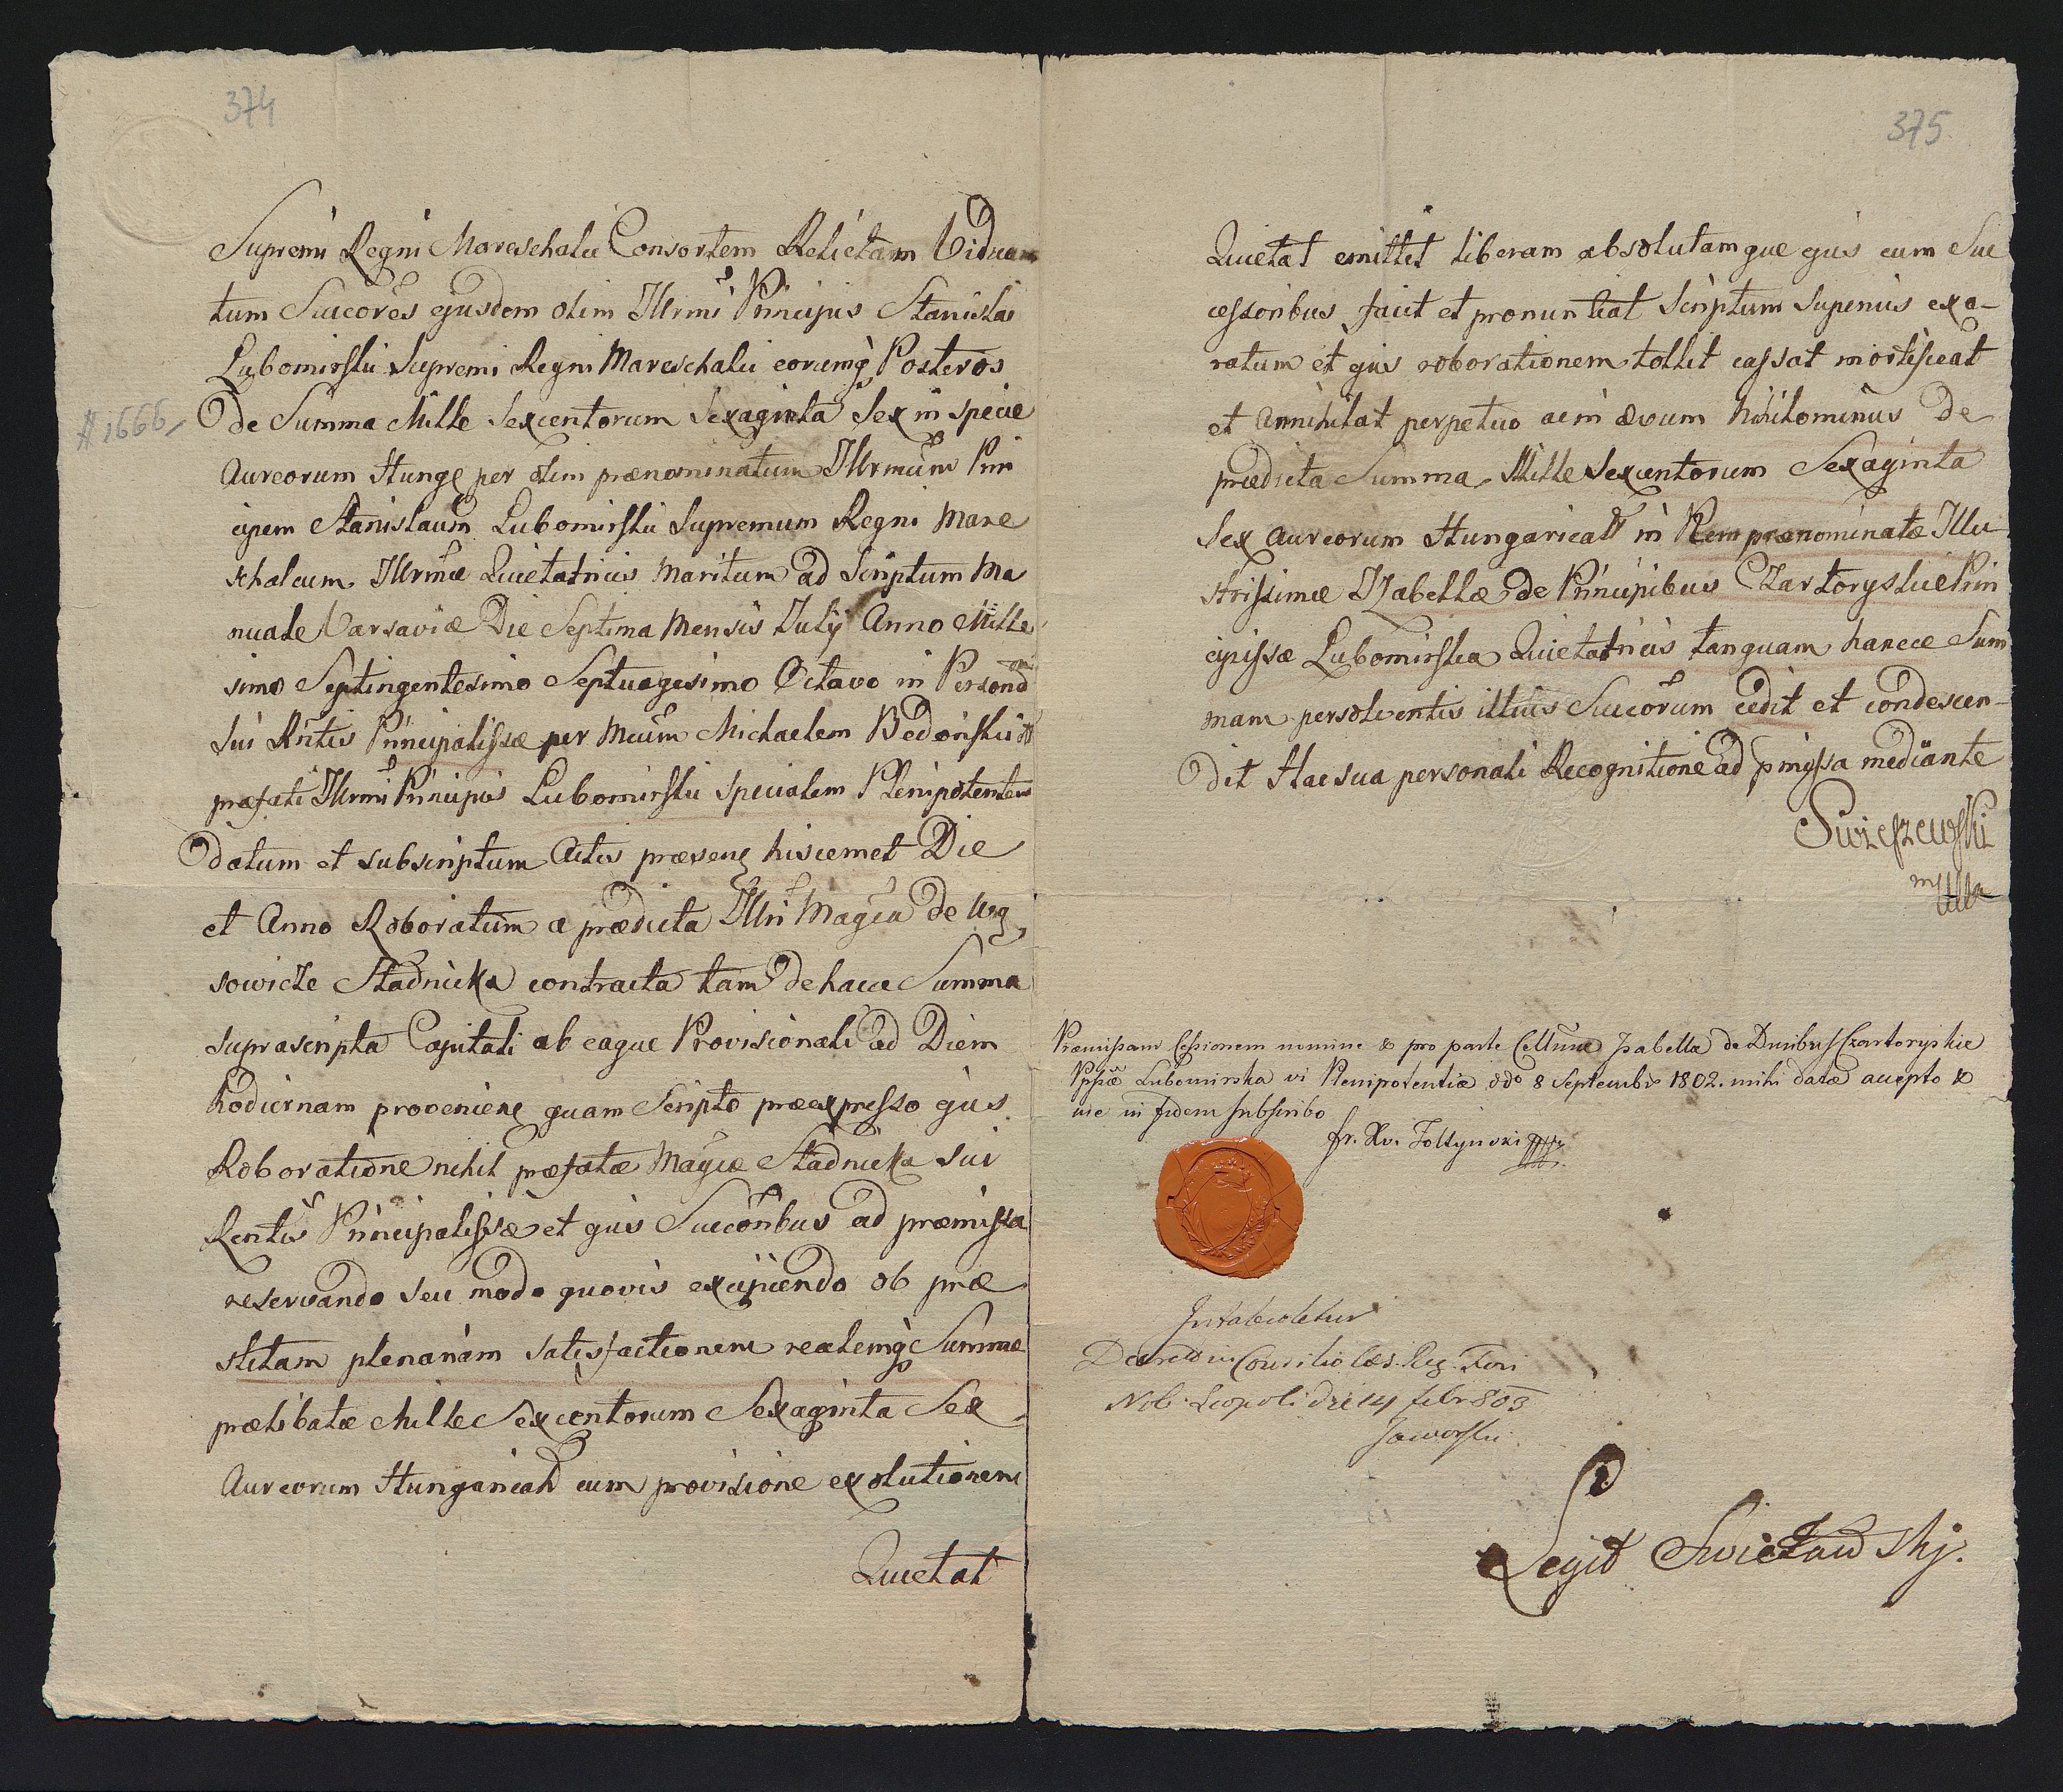 374
Supremi Regni Mareschalii Consortem Relictam Viduam
tum Succores ejusdem olim Illrmi Principis Stanislai
Lubomirskii Supremi Regni Mareschalii eorumq Posteros
# 1666
De Summa Mille Sexcentorum Sexaginta Sex in specie
Aureorum Hung per olim prænominatum Illrmum Prin
cipem Stanislaum Lubomirskii Supremum Regni Mare
schalcum Illrmæ Quietatricis Maritum ad Scriptum Ma
nuale Varsaviæ Die Septima Mensis Julij Anno Mille
simo Septingentesimo Septuagesimo Octavo in Personam
Sui Rntis Principalissæ per Mcum Michaelem Bedonskii
præfati Illrmi Principis Lubomirskii Specialem Plenipotentem
datum et subscriptum Actis præsens hiscemet Die
et Anno Roboratum a prædicta Illri Magca de
sowicze Stadnicka contracta tam de hacce Summa
suprascripta Capitali ab eaque Provisionali ad Diem
hodiernam proveniens quam Scripto præexpresso ejus
Roboratione nihil præfatæ Magcæ Stadnicka Sui
Rentis Principalissæ et ejus Succoribus ad præmissa
reservando seu modo quovis excipiendo ob præ
stitam plenariam satisfactionem realemq Summæ
prælibatæ Mille Sexcentorum Sexaginta Sex
Aureorum Hungarical cum provisione exolutionem
Quietat
375
Quietat emittit liberam absolutamque ejus cum Suc
cessoribus facit et pronuntiat Scriptum Superius exa-
ratum et ejus roborationem tollit cassat mortificat
et annihilat perpetuo ac in ævum Nihilominus De
prædicta Summa Mille Sexcentorum Sexaginta
Sex Aureorum Hungarical in Rem prænominatæ Illu
strissimæ Izabellæ de Principibus Czartoryskie Prin
cipissæ Lubomirska Quietatricis tanquam hancce Sum
mam persolventis illius Succorum cedit et condescen-
dit Hac sua personali Recognitione ad pmissa mediante
Swieszewski
mppa
Præmissam Cessionem nomine & pro parte Cellmæ Isabella de Dnibus Czartoryskie
Ppssæ Lubomirska vi Plenipotentiæ ddo 8 Septembris 1802. mihi datæ accepto &
me in fidem subscribo
fr. Xv. Foltynski
Intabuletur
Decreto in Consilio Cæs. Reg. Fori
Nob. Leopoli die 14 febr 803
Jaworski
Legit Swieżawskj.